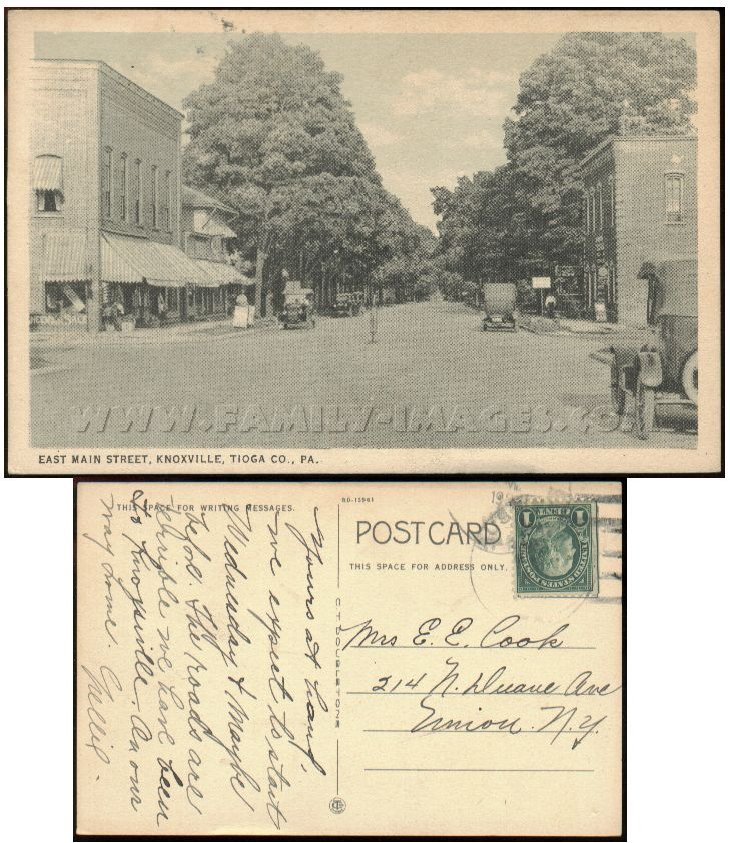 WWW.FAMILY-IMAGES.CO
EAST MAIN STREET, KNOXVILLE, TIOGA CO., PA.
THIS SPACE FOR WRITING MESSAGES.
Yours at hand,
we expect to start
Wednesday & Maybe
before. The roads are
terrible we have been
to Knoxville. On our
way home. Nellie.
BO-15961
POST CARD
THIS SPACE FOR ADDRESS ONLY.
1 CENT 1
UNITED STATES POSTAGE
Mrs E. E. Cook
214 N. Duane Ave
N.Y.